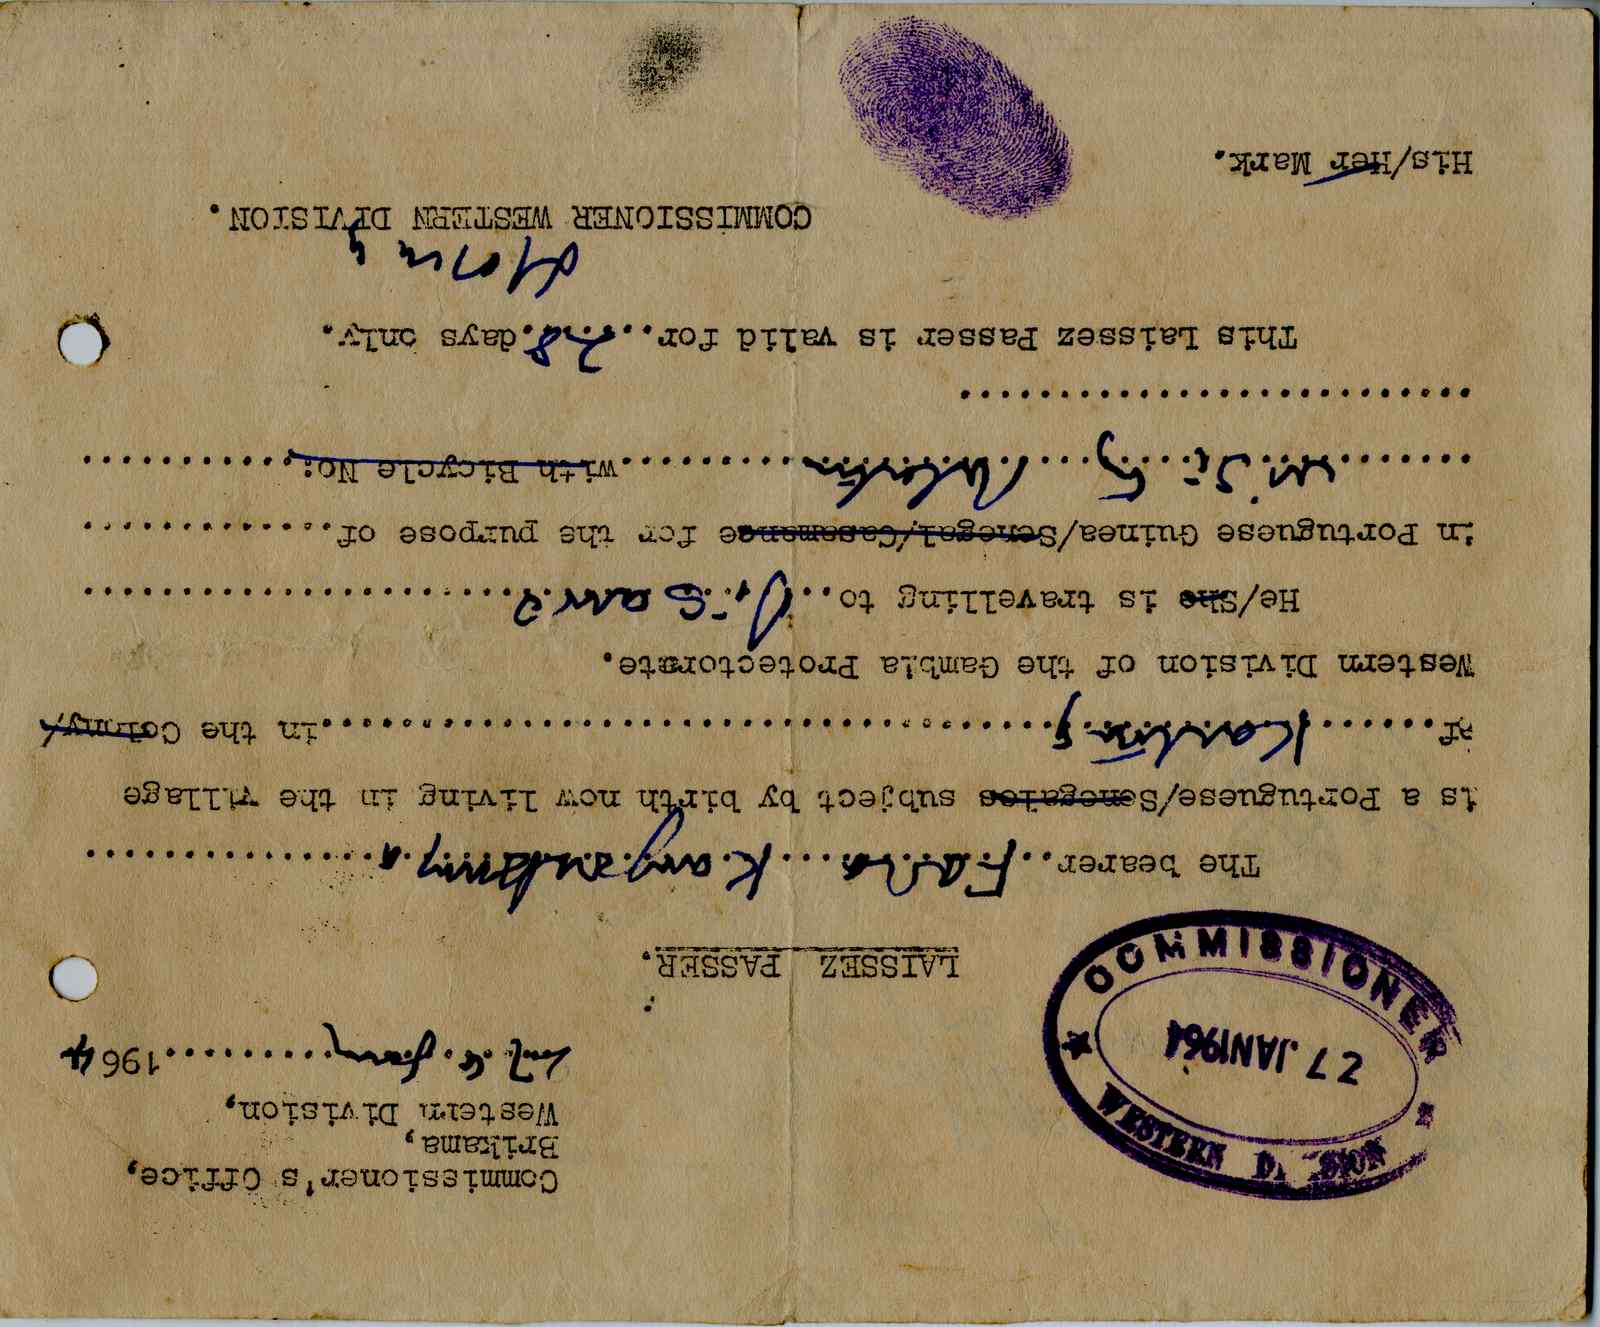 Commissioner's Office,
Brikama,
Western Division,
1964
COMMISSIONER
27 JAN 1964
WESTERN DI SION
LAISSEZ PASSER.
The bearer...
is a Portuguese/Senegalese subject by birth now living in the village
of.......in the Colony/
Western Division of the Gambia Protectorate.
He/She is travelling to...
in Portuguese Guinea/Senegal/Casamance for the purpose of..............
with Bicycle No:...........
This Laissez Passer is valid for...28.days only.
COMMISSIONER WESTERN DIVISION.
His/Her Mark.